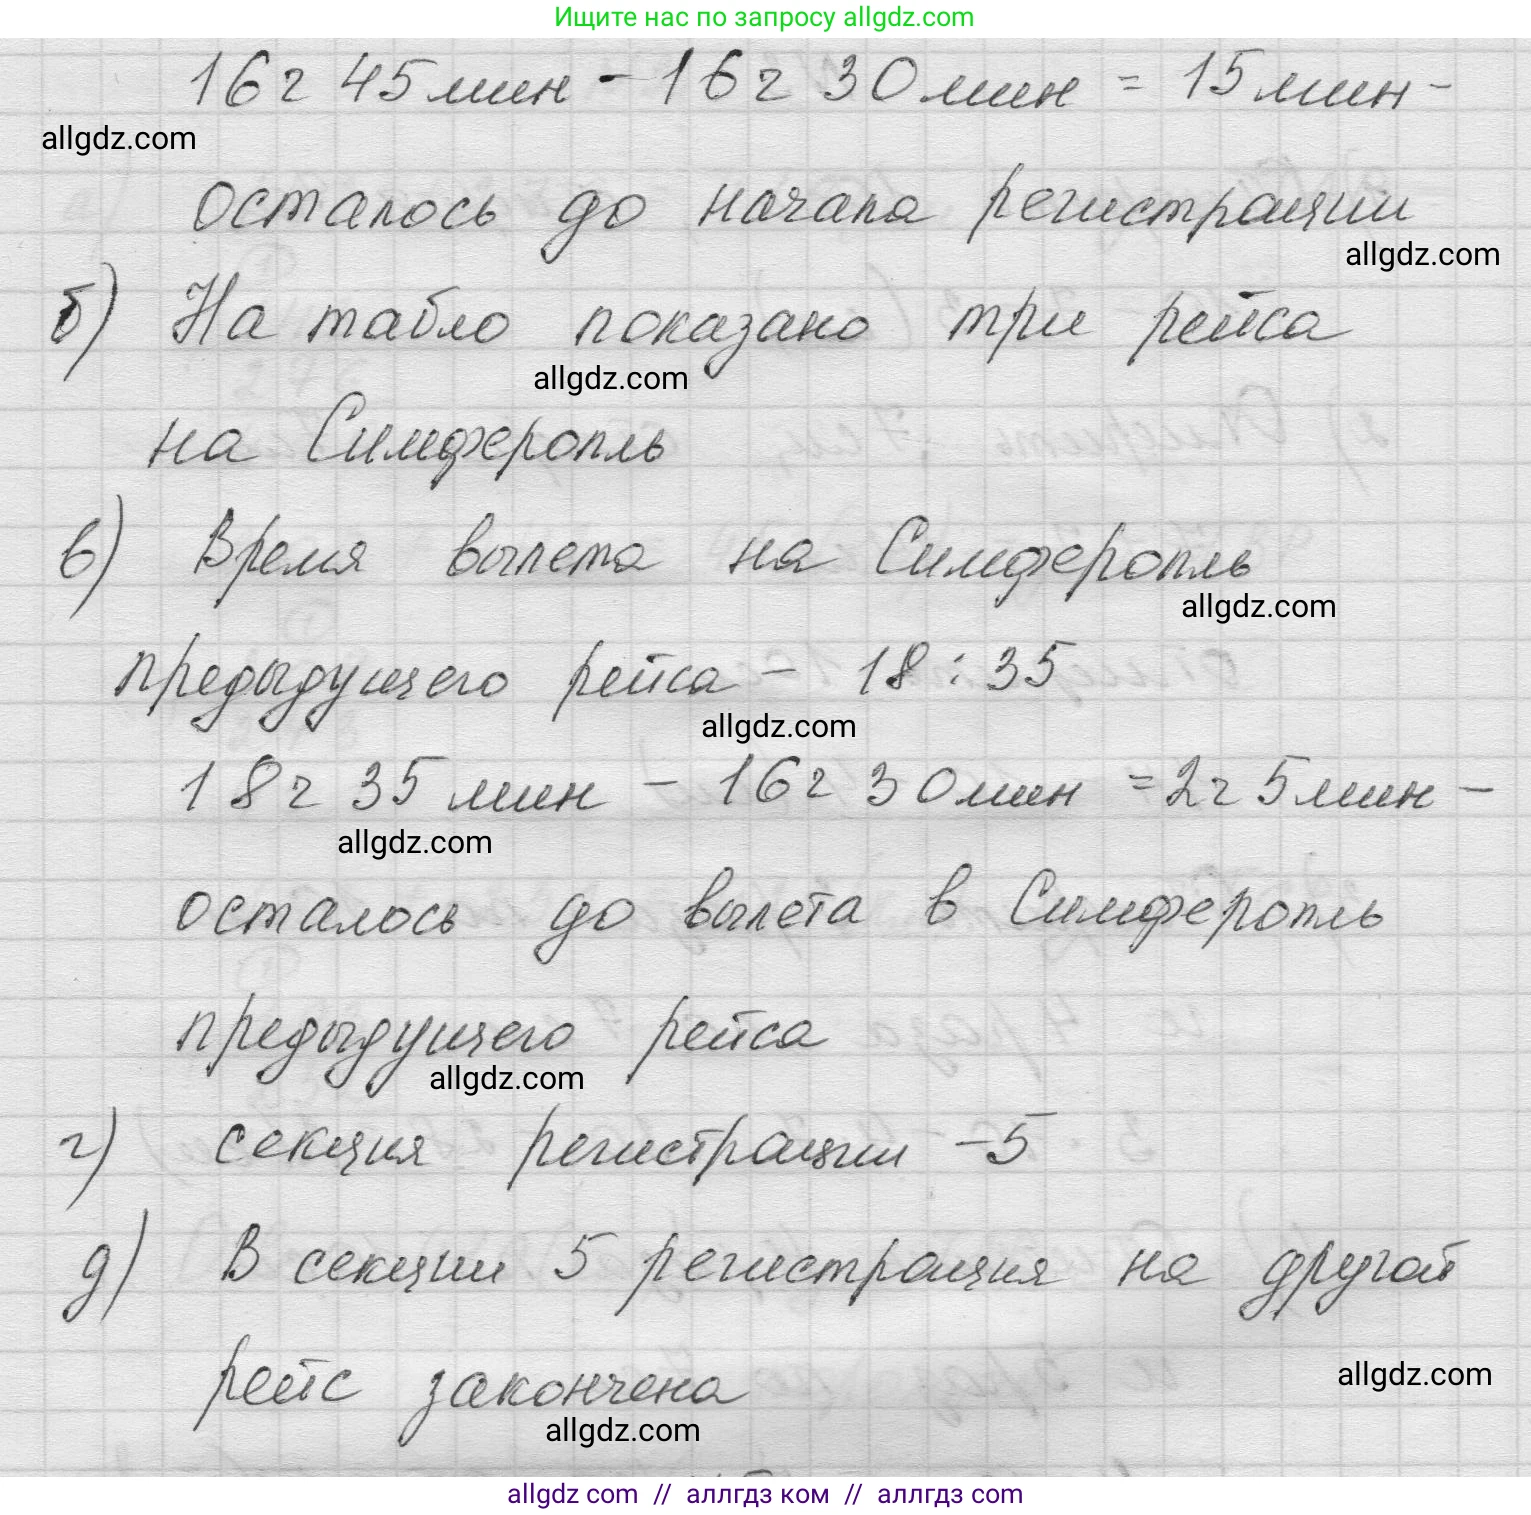 Ищите нас по запросу allgdz.com
16 ч 45 мин - 16 ч 30 мин = 15 мин -
allgdz.com
осталось до начала регистрации
allgdz.com
б) На табло показано три рейса
allgdz.com
на Симферополь
в) Время вылета на Симферополь
allgdz.com
предыдущего рейса - 18:35
allgdz.com
18 ч 35 мин - 16 ч 30 мин = 2 ч 5 мин -
allgdz.com
осталось до вылета в Симферополь
предыдущего рейса
allgdz.com
г) секция регистрации - 5
д) В секции 5 регистрация на другой
рейс закончена
allgdz.com
allgdz.com
allgdz com // аллгдз ком // аллгдз com